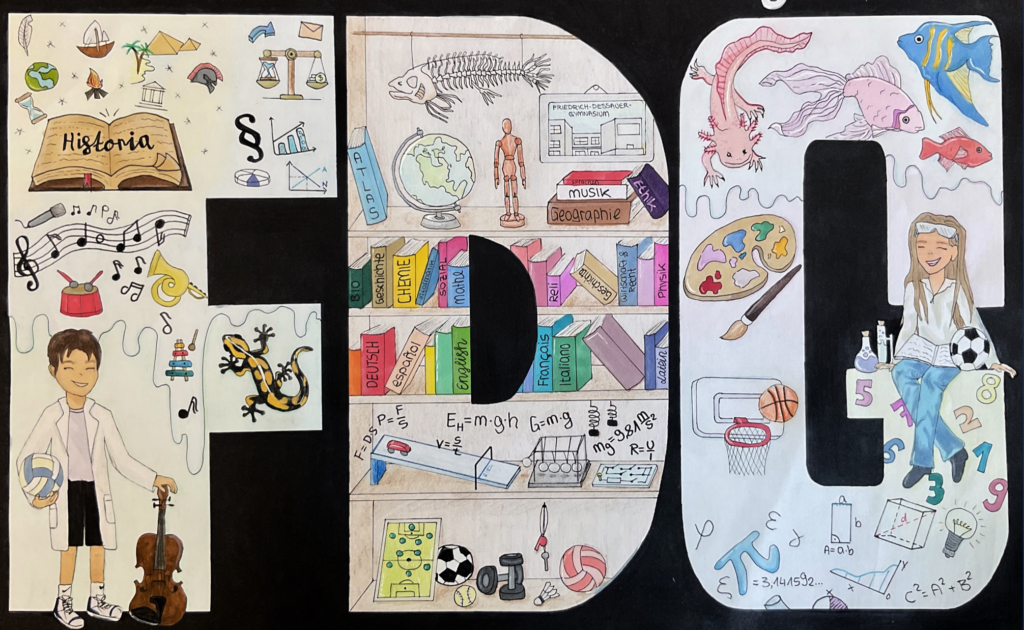 FDG
Historia
§
$
A
N
FRIEDRICH-DESSAUER-
GYMNASIUM
ATLAS
MUSIK
Geographie
Ethik
BIO
Geschichte
CHEMIE
SOZIAL
mathe
Reli
Wirtschaft &
Recht
Physik
DEUTSCH
español
English
Français
Italiano
Latein
F=D·S
P=F/S
E_H=m·g·h
G=m·g
v=s/t
mg=9,81 m/s²
R=U/I
5
7
6
8
2
1
3
9
φ
ε
ξ
π=3,141592...
b
a
A=a·b
d
x
y
0
C²=A²+B²